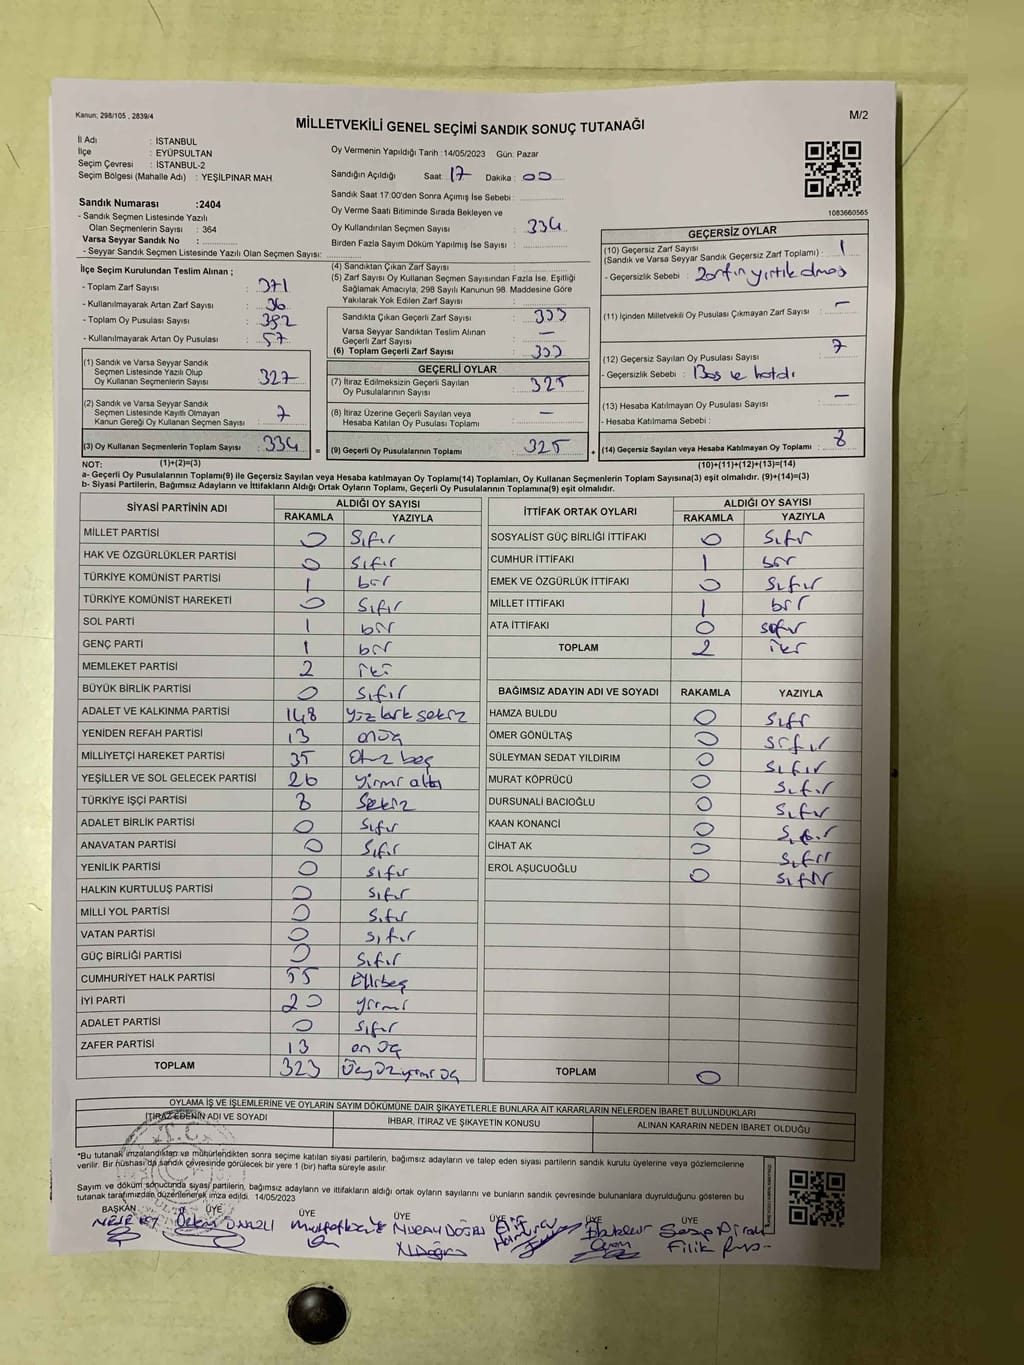 Kanun; 298/105 , 2839/4
M/2
MİLLETVEKİLİ GENEL SEÇİMİ SANDIK SONUÇ TUTANAĞI
İl Adı : İSTANBUL
İlçe : EYÜPSULTAN
Seçim Çevresi : İSTANBUL-2
Seçim Bölgesi (Mahalle Adı) : YEŞİLPINAR MAH.
Oy Vermenin Yapıldığı Tarih :14/05/2023 Gün: Pazar
Sandığın Açıldığı Saat: 17 Dakika: 00
Sandık Saat 17:00'den Sonra Açımış İse Sebebi :
Oy Verme Saati Bitiminde Sırada Bekleyen ve
Oy Kullandırılan Seçmen Sayısı : 334
Birden Fazla Sayım Döküm Yapılmış İse Sayısı :
1083660565
Sandık Numarası :2404
- Sandık Seçmen Listesinde Yazılı
Olan Seçmenlerin Sayısı : 364
Varsa Seyyar Sandık No :
- Seyyar Sandık Seçmen Listesinde Yazılı Olan Seçmen Sayısı:
İlçe Seçim Kurulundan Teslim Alınan ;
- Toplam Zarf Sayısı : 371
- Kullanılmayarak Artan Zarf Sayısı : 36
- Toplam Oy Pusulası Sayısı : 382
- Kullanılmayarak Artan Oy Pusulası : 57
(1) Sandık ve Varsa Seyyar Sandık
Seçmen Listesinde Yazılı Olup
Oy Kullanan Seçmenlerin Sayısı : 327
(2) Sandık ve Varsa Seyyar Sandık
Seçmen Listesinde Kayıtlı Olmayan
Kanun Gereği Oy Kullanan Seçmen Sayısı : 7
(3) Oy Kullanan Seçmenlerin Toplam Sayısı : 334
(1)+(2)=(3)
(4) Sandıktan Çıkan Zarf Sayısı :
(5) Zarf Sayısı Oy Kullanan Seçmen Sayısından Fazla İse, Eşitliği
Sağlamak Amacıyla; 298 Sayılı Kanunun 98. Maddesine Göre
Yakılarak Yok Edilen Zarf Sayısı :
Sandıkta Çıkan Geçerli Zarf Sayısı : 333
Varsa Seyyar Sandıktan Teslim Alınan
Geçerli Zarf Sayısı : —
(6) Toplam Geçerli Zarf Sayısı : 333
GEÇERLİ OYLAR
(7) İtiraz Edilmeksizin Geçerli Sayılan
Oy Pusulalarının Sayısı : 325
(8) İtiraz Üzerine Geçerli Sayılan veya
Hesaba Katılan Oy Pusulası Toplamı : —
= (9) Geçerli Oy Pusulalarının Toplamı : 325 +
GEÇERSİZ OYLAR
(10) Geçersiz Zarf Sayısı
(Sandık ve Varsa Seyyar Sandık Geçersiz Zarf Toplamı) : 1
- Geçersizlik Sebebi : Zarfın yırtık olması
(11) İçinden Milletvekili Oy Pusulası Çıkmayan Zarf Sayısı : —
(12) Geçersiz Sayılan Oy Pusulası Sayısı : 7
- Geçersizlik Sebebi : Boş ve hatalı
(13) Hesaba Katılmayan Oy Pusulası Sayısı : —
- Hesaba Katılmama Sebebi :
(14) Geçersiz Sayılan veya Hesaba Katılmayan Oy Toplamı : 8
(10)+(11)+(12)+(13)=(14)
NOT:
a- Geçerli Oy Pusulalarının Toplamı(9) ile Geçersiz Sayılan veya Hesaba katılmayan Oy Toplamı(14) Toplamları, Oy Kullanan Seçmenlerin Toplam Sayısına(3) eşit olmalıdır. (9)+(14)=(3)
b- Siyasi Partilerin, Bağımsız Adayların ve İttifakların Aldığı Ortak Oyların Toplamı, Geçerli Oy Pusulalarının Toplamına(9) eşit olmalıdır.
SİYASİ PARTİNİN ADI ALDIĞI OY SAYISI
RAKAMLA YAZIYLA
MİLLET PARTİSİ 0 Sıfır
HAK VE ÖZGÜRLÜKLER PARTİSİ 0 Sıfır
TÜRKİYE KOMÜNİST PARTİSİ 1 bir
TÜRKİYE KOMÜNİST HAREKETİ 0 Sıfır
SOL PARTİ 1 bir
GENÇ PARTİ 1 bir
MEMLEKET PARTİSİ 2 iki
BÜYÜK BİRLİK PARTİSİ 0 Sıfır
ADALET VE KALKINMA PARTİSİ 148 yüz kırk sekiz
YENİDEN REFAH PARTİSİ 13 onüç
MİLLİYETÇİ HAREKET PARTİSİ 35 Otuz beş
YEŞİLLER VE SOL GELECEK PARTİSİ 26 yirmi altı
TÜRKİYE İŞÇİ PARTİSİ 8 Sekiz
ADALET BİRLİK PARTİSİ 0 Sıfır
ANAVATAN PARTİSİ 0 Sıfır
YENİLİK PARTİSİ 0 Sıfır
HALKIN KURTULUŞ PARTİSİ 0 Sıfır
MİLLİ YOL PARTİSİ 0 Sıfır
VATAN PARTİSİ 0 Sıfır
GÜÇ BİRLİĞİ PARTİSİ 0 Sıfır
CUMHURİYET HALK PARTİSİ 55 Ellibeş
İYİ PARTİ 20 yirmi
ADALET PARTİSİ 0 Sıfır
ZAFER PARTİSİ 13 on üç
TOPLAM 323 Üçyüzyirmi üç
İTTİFAK ORTAK OYLARI ALDIĞI OY SAYISI
RAKAMLA YAZIYLA
SOSYALİST GÜÇ BİRLİĞİ İTTİFAKI 0 Sıfır
CUMHUR İTTİFAKI 1 bir
EMEK VE ÖZGÜRLÜK İTTİFAKI 0 Sıfır
MİLLET İTTİFAKI 1 bir
ATA İTTİFAKI 0 sıfır
TOPLAM 2 iki
BAĞIMSIZ ADAYIN ADI VE SOYADI RAKAMLA YAZIYLA
HAMZA BULDU 0 Sıfır
ÖMER GÖNÜLTAŞ 0 Sıfır
SÜLEYMAN SEDAT YILDIRIM 0 Sıfır
MURAT KÖPRÜCÜ 0 Sıfır
DURSUNALİ BACIOĞLU 0 Sıfır
KAAN KONANCİ 0 Sıfır
CİHAT AK 0 Sıfır
EROL AŞUCUOĞLU 0 Sıfır
TOPLAM 0
OYLAMA İŞ VE İŞLEMLERİNE VE OYLARIN SAYIM DÖKÜMÜNE DAİR ŞİKAYETLERLE BUNLARA AİT KARARLARIN NELERDEN İBARET BULUNDUKLARI
İTİRAZ EDENİN ADI VE SOYADI İHBAR, İTİRAZ VE ŞİKAYETİN KONUSU ALINAN KARARIN NEDEN İBARET OLDUĞU
T.C.
*Bu tutanak imzalandıktan ve mühürlendikten sonra seçime katılan siyasi partilerin, bağımsız adayların ve talep eden siyasi partilerin sandık kurulu üyelerine veya gözlemcilerine
verilir. Bir nüshası da sandık çevresinde görülecek bir yere 1 (bir) hafta süreyle asılır.
Sayım ve döküm sonucunda siyasi partilerin, bağımsız adayların ve ittifakların aldığı ortak oyların sayılarını ve bunların sandık çevresinde bulunanlara duyrulduğunu gösteren bu
tutanak tarafımızdan düzenlenerek imza edildi. 14/05/2023
BAŞKAN ÜYE ÜYE ÜYE ÜYE ÜYE
NURAY DOĞRU